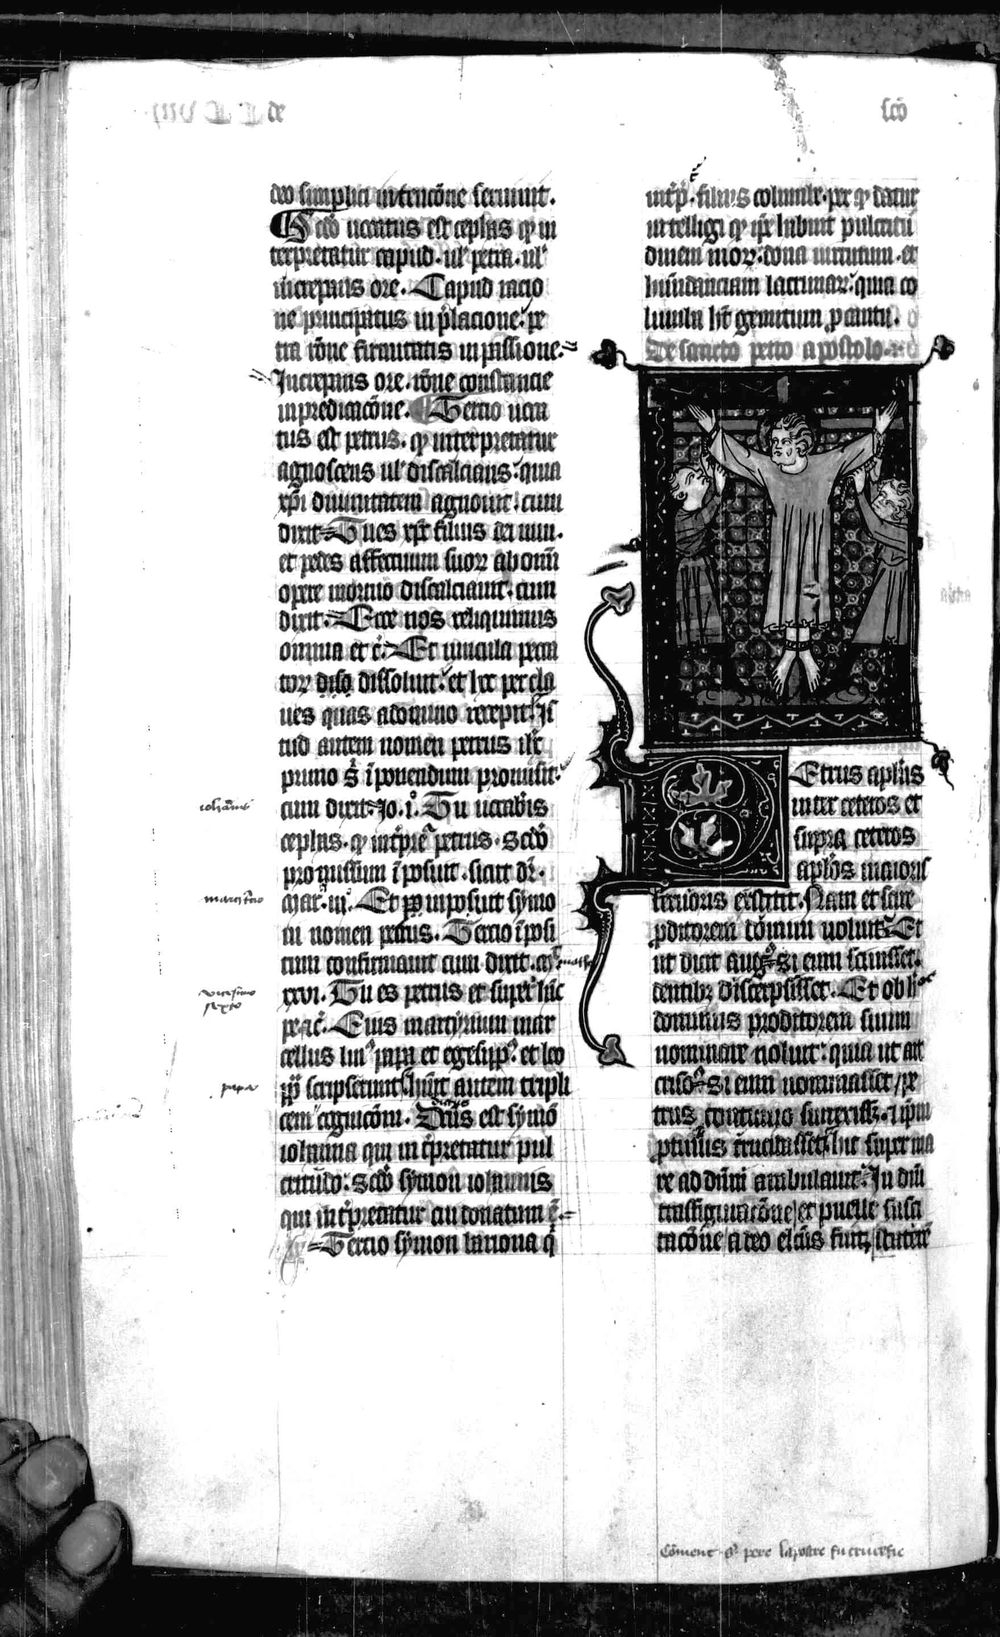 de
scō
deo simplici intencōne seruiuit.
Scđo uocatus est cephas qđ in
terpretatur capud. ul' petra. ul'
increpans ore. Capud racio
ne principatus in p̄lacione. pe
tra rōne firmitatis in passione.
Increpans ore. rōne constancie
in predicacōne. Tercio uoca
tus est petrus. qđ interpretatur
agnoscens ul' discalcians. quia
xp̄i diuinitatem agnouit. cum
dixit. Tu es xp̄c filius dei uiui.
et pedes affectuum suoꝝ ab omī
opere mortuo discalciauit. cum
dixit. Ecce nos reliquimus
omnia et c̄. Et uincula pecca
toꝝ dissoluit. et hec per cla
ues quas a domino recepit. Is
tud autem nomen petrus
primo s̄ īponendum promisit.
cum dixit. Jo. i°. Tu uocab'is
cephas. qđ int'pre' petrus. Scđo
promissum īposuit. sicut dr̄.
mar. iij. Et īposuit symo
ni nomen petrus. Tercio īposi
tum confirmauit cum dixit. mt
xxvi. Tu es petrus et super hāc
pe ac̄. Eius martyrium mar
cellus linꝰ papa et egesippꝰ et leo
pp̄ scripserunt. hūit autem tripli
cem cognicōm. Dcūs est symō
iohanna qui int'pretatur pul
critudo. Scđo symon iohannis
qui int'pretatur cui donatum ē.
Tercio symon bariona q̄
iohannes
marci tercio
vicesimo
sexto
papa
math
dictus
int'p'. filius columbe. per qđ datur
intelligi qđ ipse habuit pulcritu
dinem moꝝ. dona uirtutum. et
habundanciam lacrimaꝝ. quia co
lumba h't gemitum p cantu.
De sancto petro apostolo
Petrus apl'us
inter ceteros et
supra ceteros
apl'os maioris
feruoris exstitit. Nam et scire
pditorem domini uoluit. Et
ut dicit augꝰ. Si eum scuisset.
dentibꝫ discerpsisset. Et ob h°
dominus proditorem suum
nominare noluit. quia ut ait
crisoꝰ. Si eum nominasset / pe
trus continuo surrexisset. et ip̄m
ptinus trucidasset. hic super ma
re ad dn̄m ambulauit. In dn̄i
transfiguracōne / et puelle susci
tacōne / a deo el'cus fuit
Coment s' pere lapostre fu crucefie